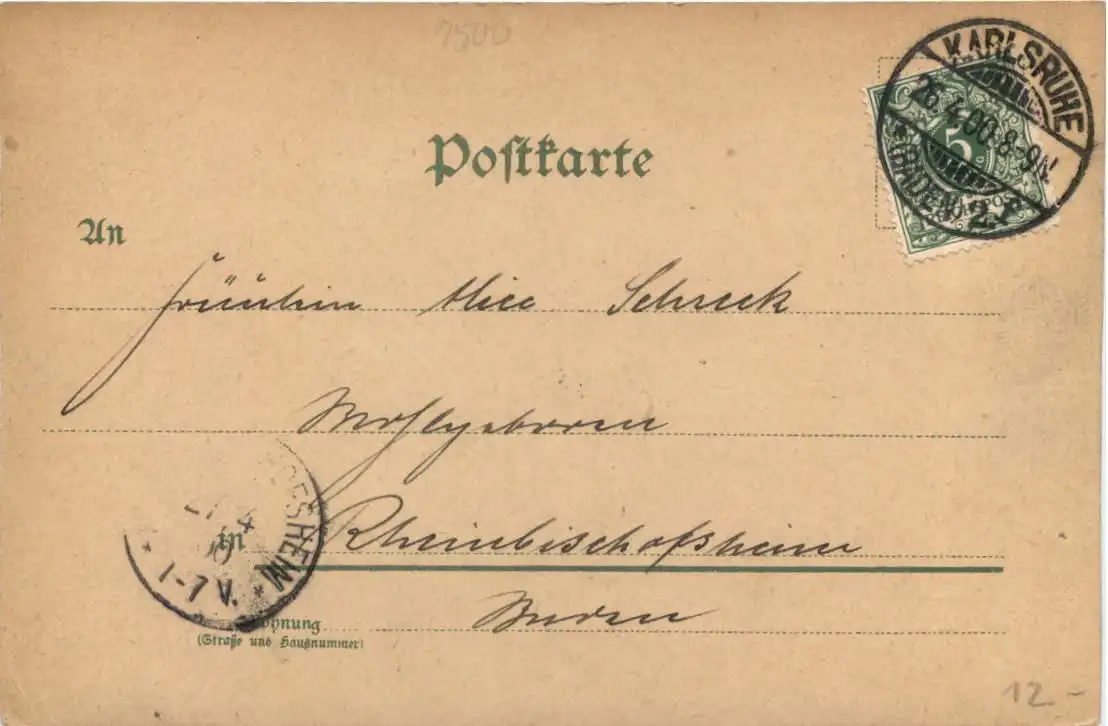 7500
KARLSRUHE
26.4.00.8-9N.
* (BADEN) 2.
5
Postkarte
An
Fräulein Alice Schreck
Wohlgeboren
in Rheinbischofsheim
Baden
OFSHEIM
4
00
* 1-7 V. *
Wohnung
(Straße und Hausnummer)
12.-